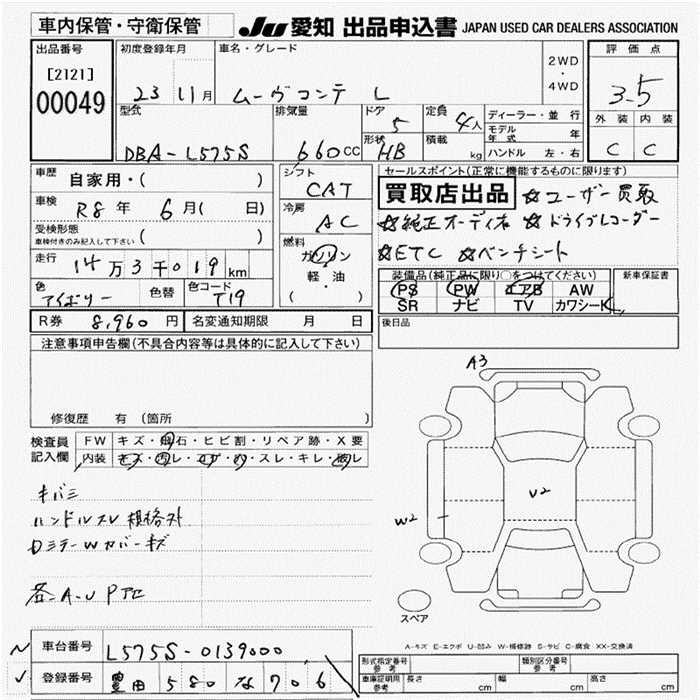 車内保管・守衛保管 JU 愛知 出品申込書 JAPAN USED CAR DEALERS ASSOCIATION
出品番号 初度登録年月 車名・グレード 評価点
[2121] 2WD・4WD
00049 23 11月 ムーヴコンテ L 3.5
型式 排気量 ドア 定員 ディーラー・並行 外装 内装
5 4人 モデル年式 年
形状 積載 ハンドル 左・右
DBA-L575S 660cc HB kg C C
車歴 自家用・( ) シフト セールスポイント(正常に機能するものに限ります)
CAT 買取店出品 ☆ユーザー買取
車検 R8年 6月( 日) 冷房 AC ☆純正オーディオ ☆ドライブレコーダー
受検形態 ( )
車検付きのみ記入して下さい
燃料 ☆ETC ☆ベンチシート
走行 14万3千019km ガソリン
軽・油
( )
装備品(純正品に限り○をつけてください) 新車保証書
色 アイボリー 色替 色コード T19 PS PW エアB AW
SR ナビ TV カワシート
R券 8,960円 名変通知期限 月 日 後日品
注意事項申告欄(不具合内容等は具体的に記入して下さい)
A3
修復歴 有(箇所
検査員記入欄 FW キズ・飛石・ヒビ割・リペア跡・X要
内装 キズ・汚レ・コゲ・穴・スレ・キレ・破レ
キバミ U2
ハンドルスレ 規格外 W2
Dミラーwカバーキズ
各-A-U Pアセ
スペア
A-キズ E-エクボ U-凹み W-補修跡 S-サビ C-腐食 XX-交換済
車台番号 L575S-0139000
登録番号 豊田 580 な 706
形式指定番号 参考 類別区分番号 参考
車庫証明用 参考 長さ cm 幅 cm 高さ cm